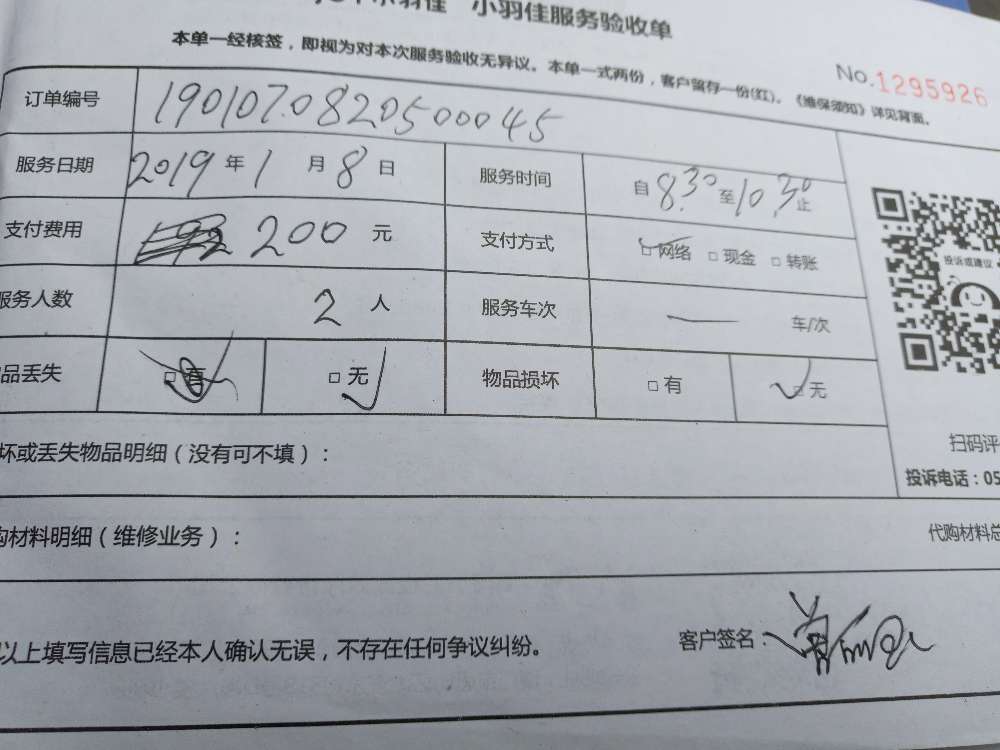 小羽佳服务验收单
本单一经核签，即视为对本次服务验收无异议。本单一式两份，客户留存一份(红)。《维保须知》详见背面。
No.1295926
订单编号 1901070820500045
服务日期 2019年1月8日 服务时间 自8:30至10:30止
支付费用 200元 支付方式 □网络 □现金 □转账
服务人数 2人 服务车次 — 车/次
品丢失 □有 □无 物品损坏 □有 □无
投诉或建议
扫码评
投诉电话：05
坏或丢失物品明细（没有可不填）：
购材料明细（维修业务）： 代购材料总
以上填写信息已经本人确认无误，不存在任何争议纠纷。 客户签名：